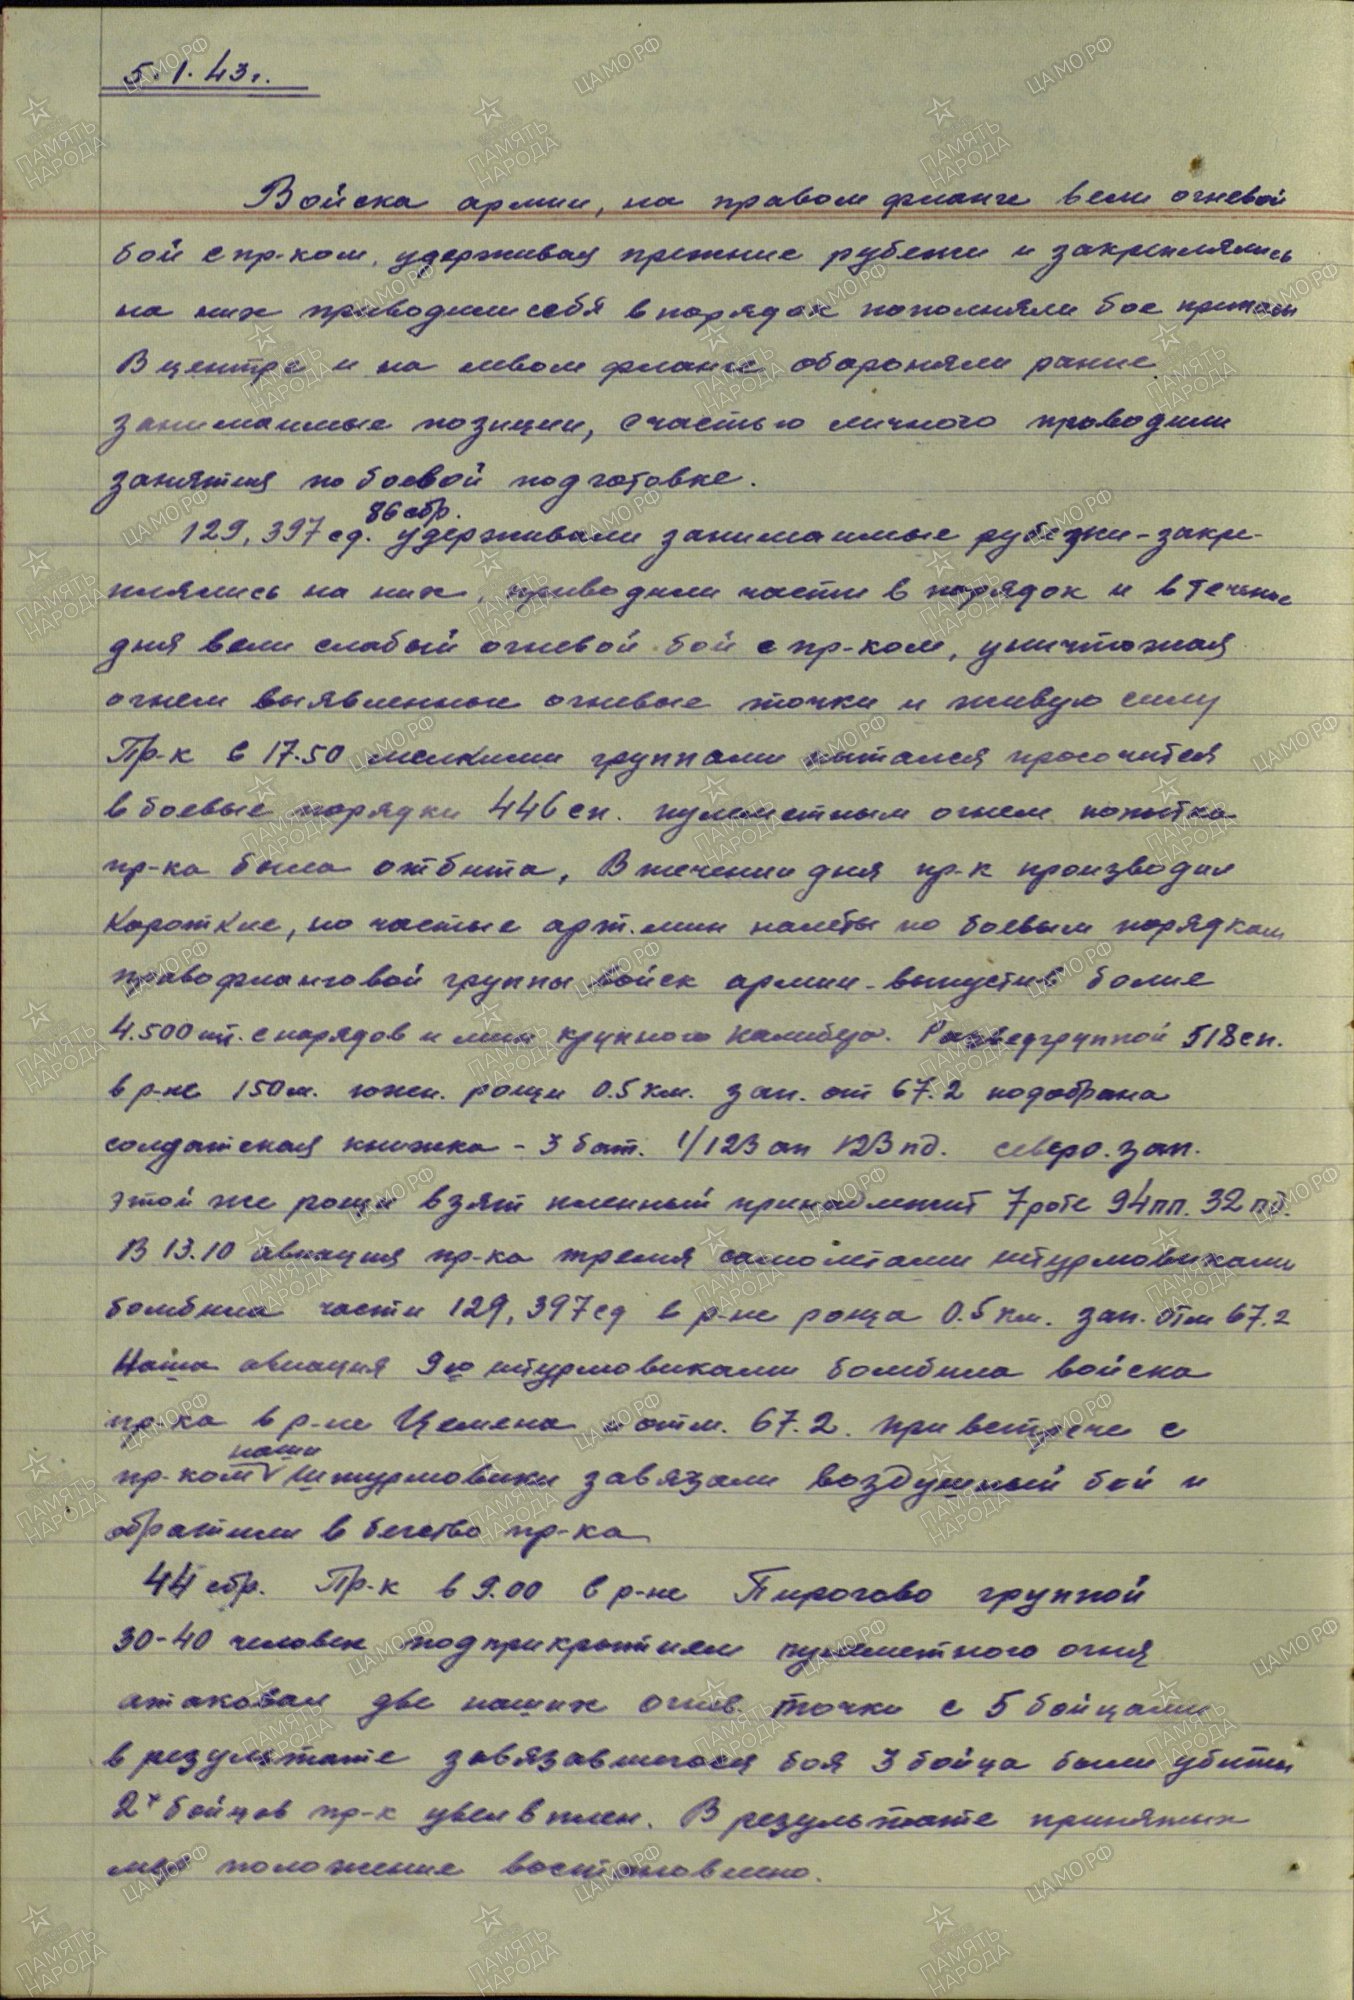 5.1.43г.
Войска армии, на правом фланге вели огневой
бой с пр-ком, удерживая прежние рубежи и закреплялись
на них приводили себя в порядок пополняли бое припасы
В центре и на левом фланге обороняли ранее
занимаемые позиции, с частью личного проводили
занятия по боевой подготовке.
86 сбр.
129, 397 сд. удерживали занимаемые рубежи - закре-
плялись на них, приводили части в порядок и в течение
дня вели слабый огневой бой с пр-ком, уничтожая
огнем выявленные огневые точки и живую силу
Пр-к в 17.50 мелкими группами пытался просочится
в боевые порядки 446 сп. пулеметным огнем попытка
пр-ка была отбита, В течении дня пр-к производил
короткие, но частые арт. мин налеты по боевым порядкам
правофланговой группы войск армии - выпустив более
4.500 шт. снарядов и мин крупного калибра. Разведгруппой 518 сп.
в р-не 150 м. южн. рощи 0.5 км. зап. от 67.2 подобрана
солдатская книжка - 3 бат. 1/123 ап 123 пд. северо. зап.
этой же рощи взят пленный принадлежит 7 роте 94 пп. 32 пд.
В 13.10 авиация пр-ка тремя самолетами штурмовиками
бомбила части 129, 397 сд в р-не роща 0.5 км. зап. отм 67.2
Наша авиация 9ю штурмовиками бомбила войска
пр-ка в р-не Цемена и отм. 67.2. при встрече с
наши
пр-ком штурмовики завязали воздушный бой и
обратили в бегство пр-ка
44 сбр. Пр-к в 9.00 в р-не Пирогово группой
30-40 человек под прикрытием пулеметного огня
атаковал две наших огнев. точки с 5 бойцами
в результате завязавшегося боя 3 бойца были убиты
2х бойцов пр-к увел в плен. В результате принятых
мер положение востановлено.
ПАМЯТЬ НАРОДА
ЦАМО.РФ